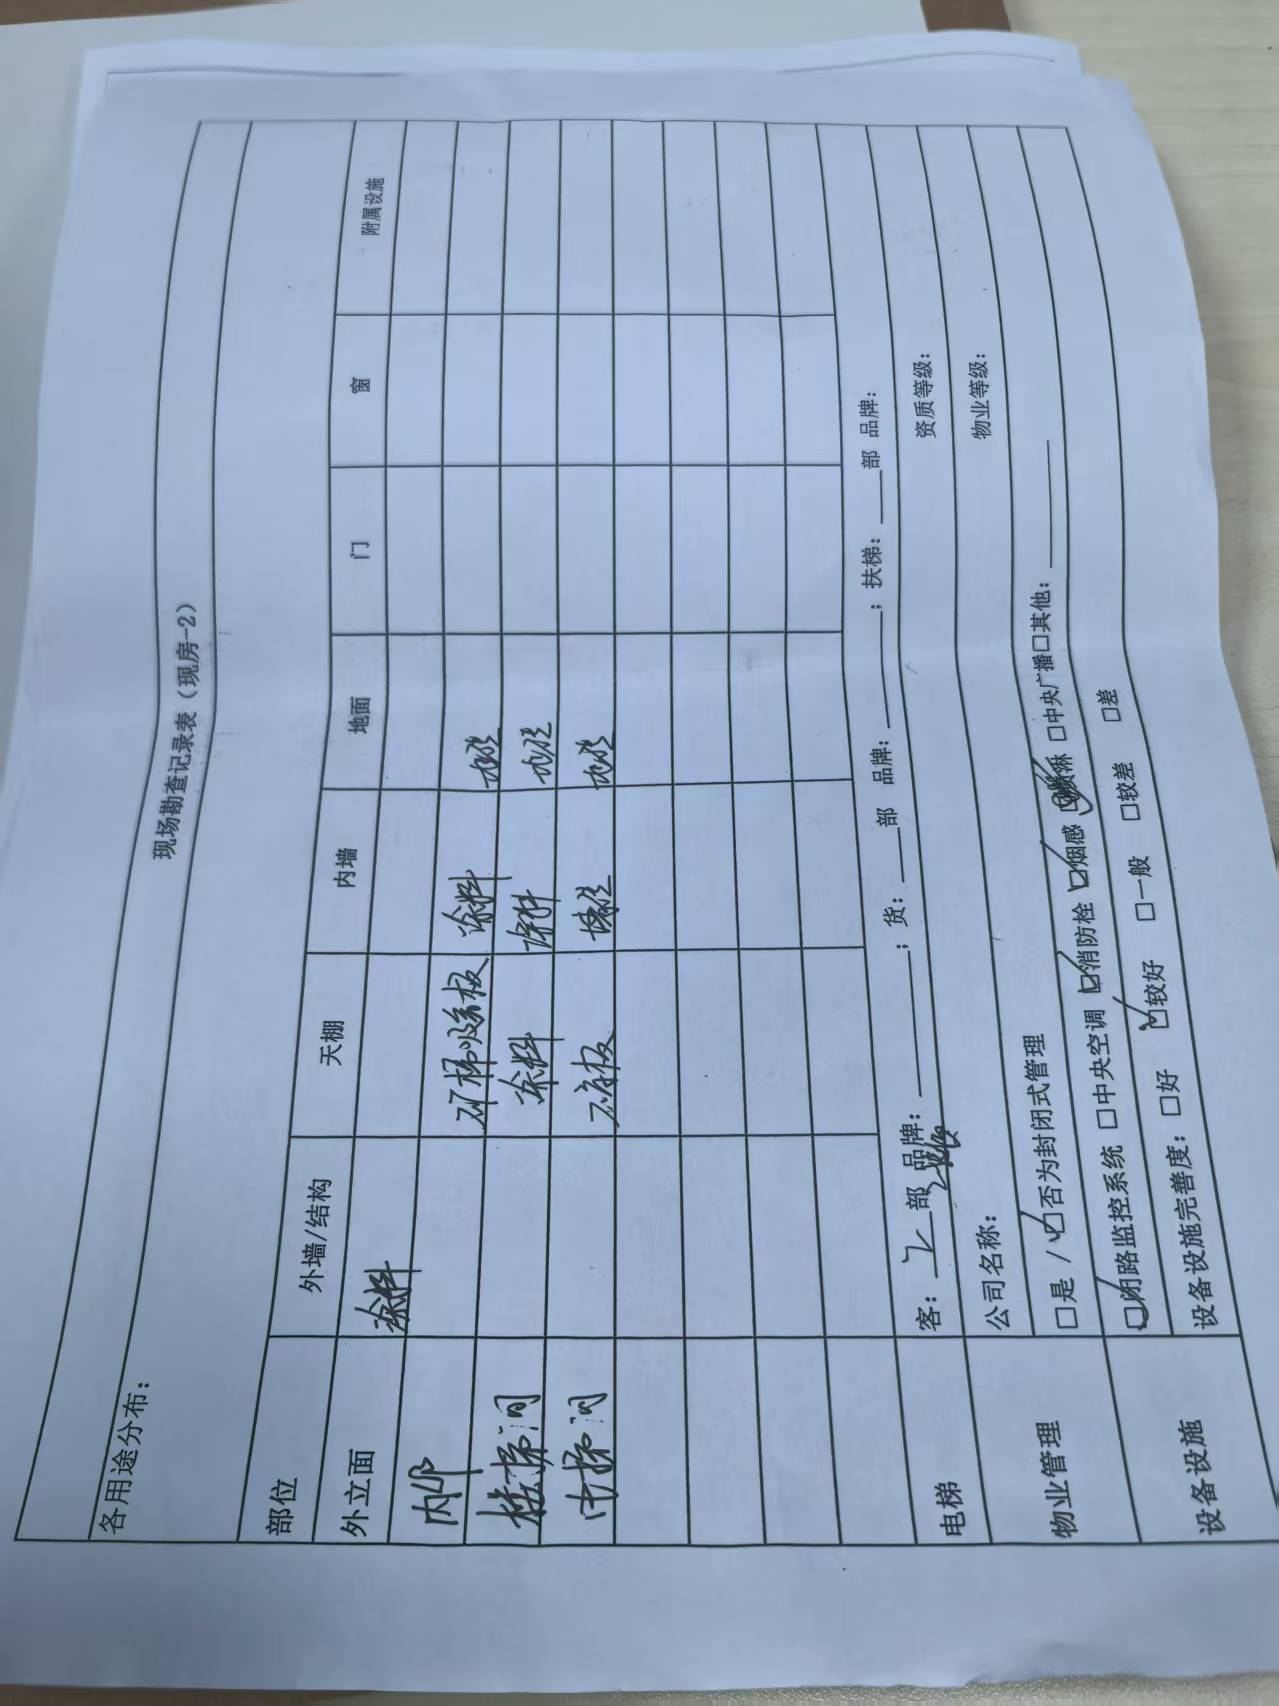 现场勘查记录表（现房-2）
各用途分布：
部位 外墙/结构 天棚 内墙 地面 门 窗 附属设施
外立面 涂料
内部 涂料 地砖
楼梯间 涂料 涂料 地砖
电梯间 石膏板 墙砖 地砖
电梯 客： 2 部 品牌： ；货： 部 品牌： ；扶梯： 部 品牌：
物业管理 公司名称： 资质等级：
□是 / ☑否为封闭式管理 物业等级：
设备设施 ☑闭路监控系统 □中央空调 ☑消防栓 ☑烟感 ☑喷淋 □中央广播 □其他：
设备设施完善度： □好 ☑较好 □一般 □较差 □差